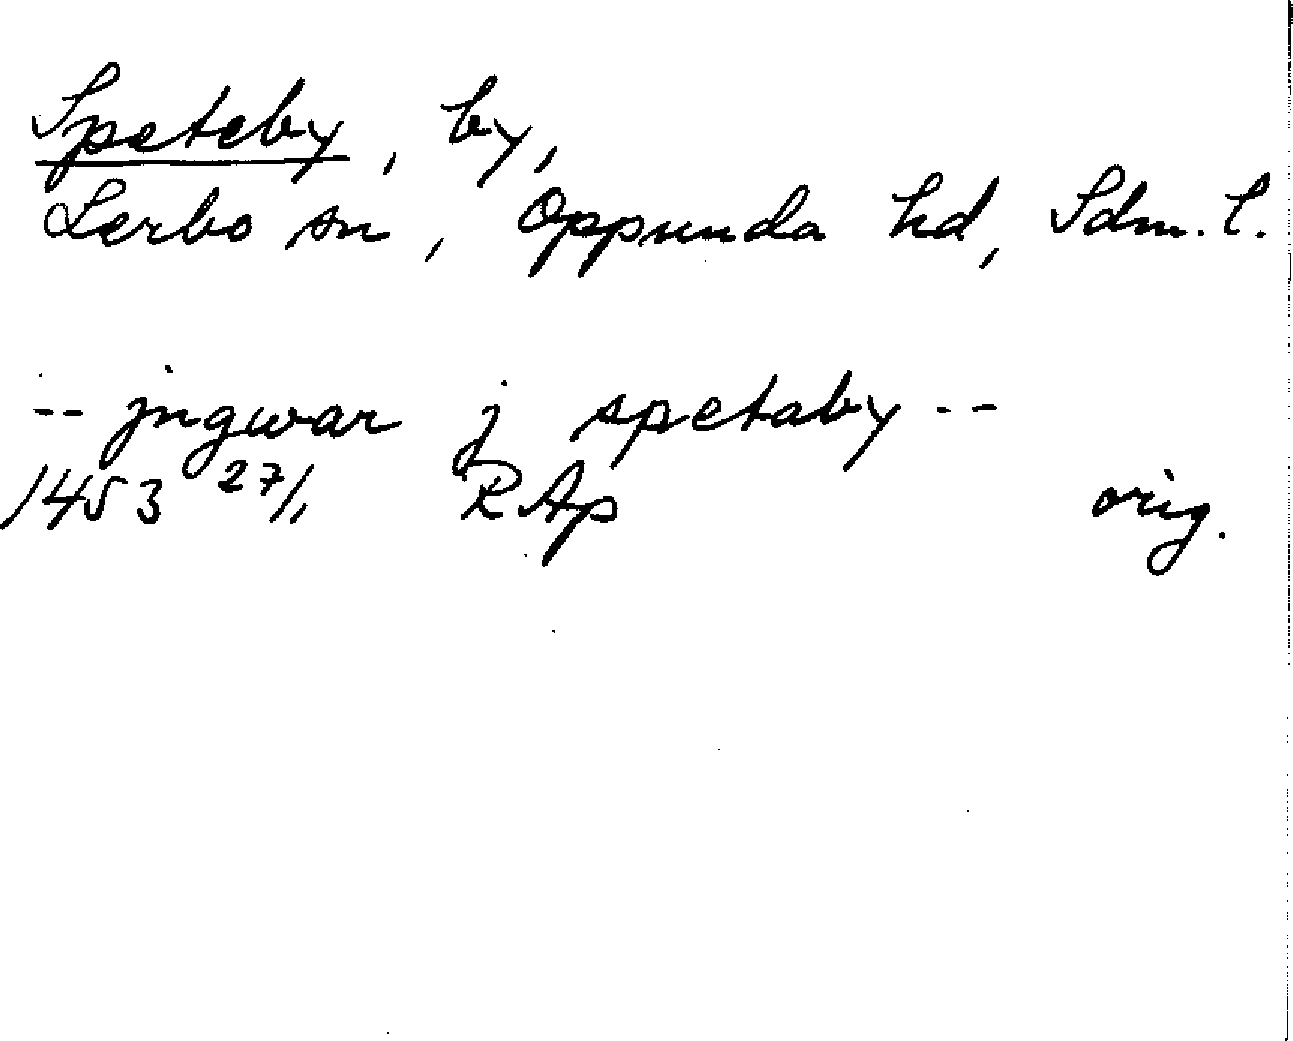 Speteby, by,
Lerbo sn, Oppunda hd, Sdm. l.
-- jngwar j spetaby --
1453 27/1 RAp orig.